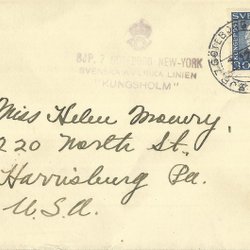 BJP. 7 GÖTEBORG NEW-YORK
SVENSKA AMERIKA LINIEN
"KUNGSHOLM"
SVE
Miss Helen Mowery
220 North St.
Harrisburg Pa.
U.S.A.